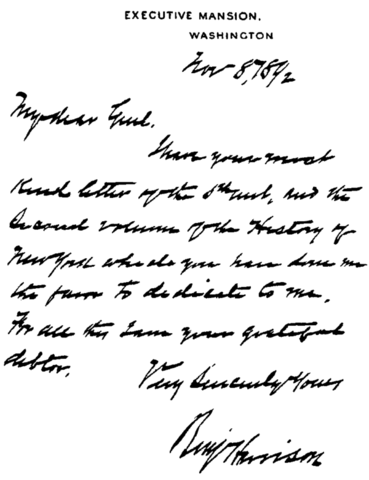 EXECUTIVE MANSION.
WASHINGTON
Nov 8,
My dear Genl.
I have your most
kind letter of the 5th and the
second volume of the History of
New York which you have done me
the favor to dedicate to me.
For all this I am your grateful
debtor.
Very Sincerely Yours
Benj Harrison